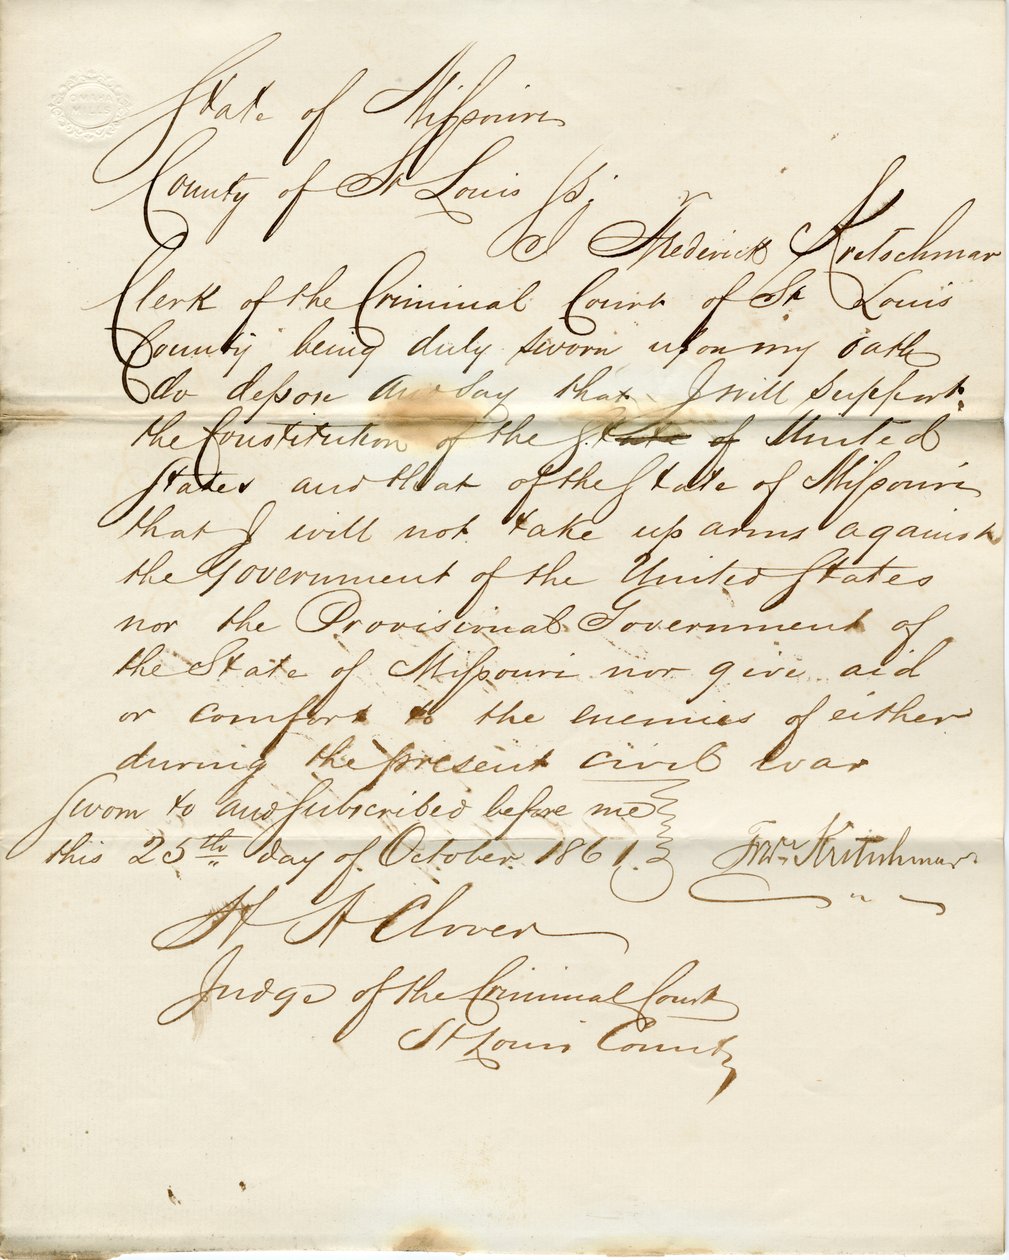 OMAR
MILLS
State of Missouri
County of St Louis ss.
I Frederick Kretschmar
Clerk of the Criminal Court of St Louis
County being duly sworn upon my oath
do depose and say that I will support
the Constitution of the State of United
States and that of the State of Missouri
that I will not take up arms against
the Government of the United States
nor the Provisional Government of
the State of Missouri nor give aid
or comfort to the enemies of either
during the present civil war
Sworn to and subscribed before me
this 25th day of October 1861. Fredr. Kretschmar
A Clover
Judge of the Criminal Court
St Louis County